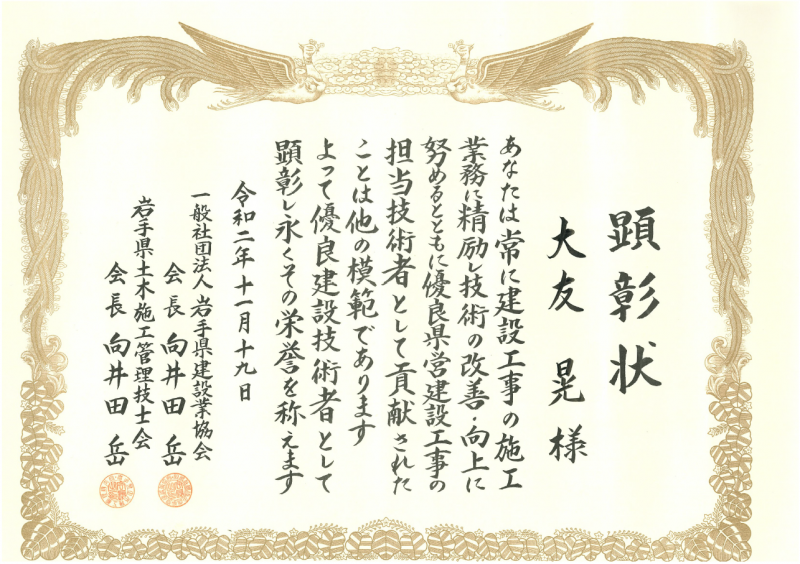 顕彰状
大友 晃 様
あなたは常に建設工事の施工
業務に精励し技術の改善・向上に
努めるとともに優良県営建設工事の
担当技術者として貢献された
ことは他の模範であります
よって優良建設技術者として
顕彰し永くその栄誉を称えます
令和二年十一月十九日
一般社団法人 岩手県建設業協会
会長 向井田 岳
岩手県土木施工管理技士会
会長 向井田 岳